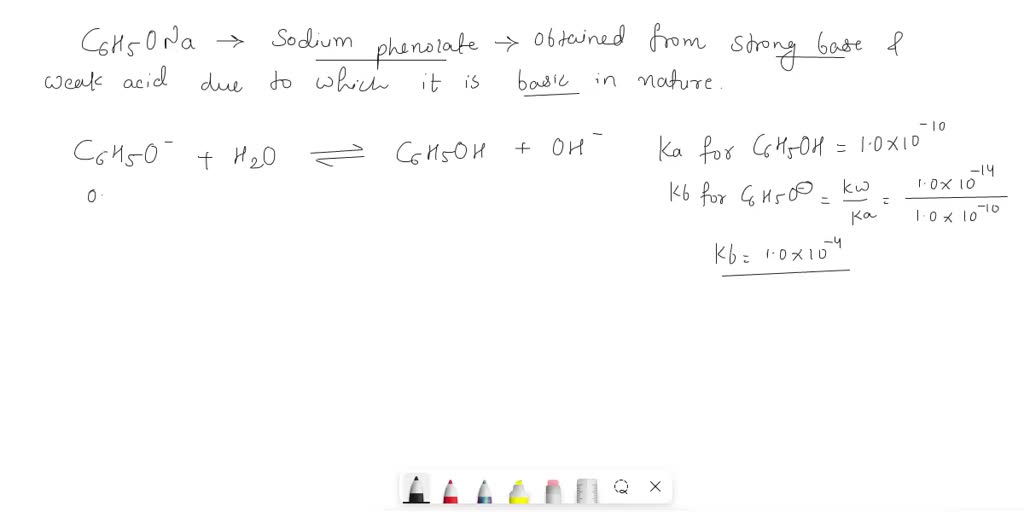 C6H5ONa → Sodium phenolate → obtained from strong base &
weak acid due to which it is basic in nature.
C6H5O⁻ + H2O ⇌ C6H5OH + OH⁻
0.
Ka for C6H5OH = 1.0×10⁻¹⁰
Kb for C6H5O⊖ = kw/Ka = 1.0×10⁻¹⁴/1.0×10⁻¹⁰
Kb = 1.0×10⁻⁴